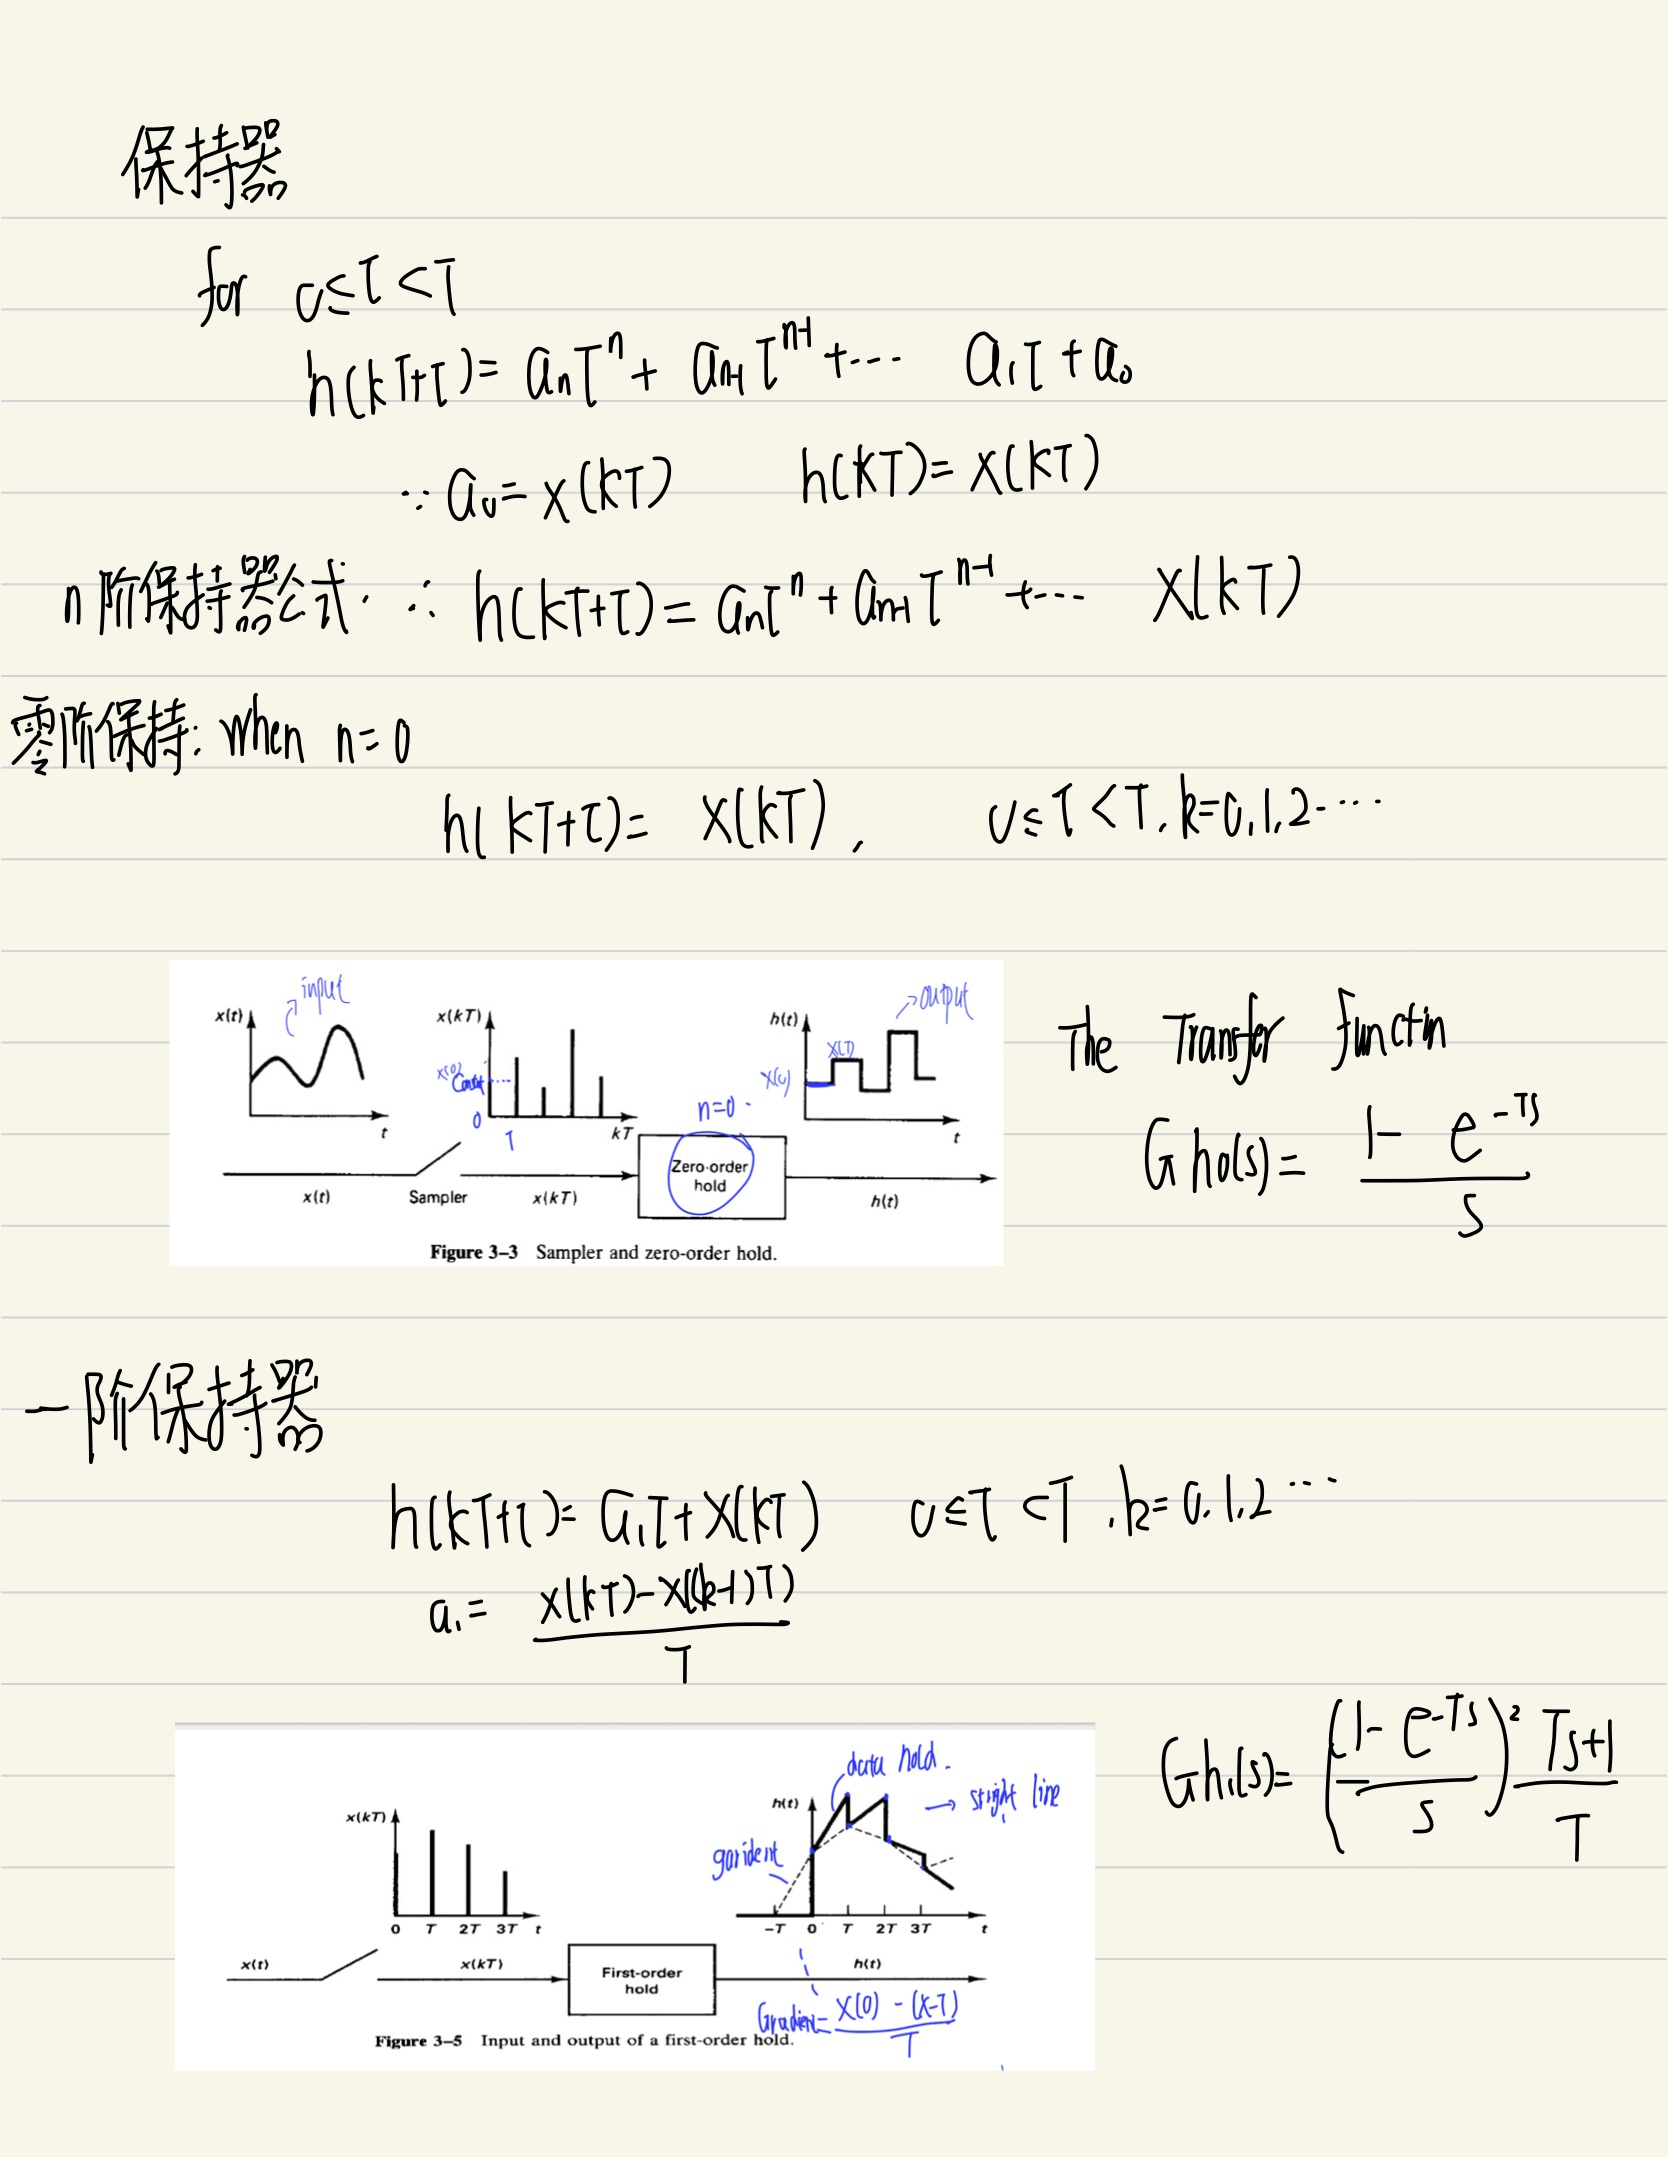 保持器
for 0≤τ<T
h(kT+τ)= aₙτⁿ + aₙ₋₁τⁿ⁻¹ +··· a₁τ + a₀
∵ a₀= x(kT) h(kT)= x(kT)
n阶保持器公式. ∴ h(kT+τ)= aₙτⁿ + aₙ₋₁τⁿ⁻¹ +··· x(kT)
零阶保持: when n=0
h(kT+τ)= x(kT), 0≤τ<T, k=0,1,2·····
x(t) input
x(kT) x(0) 0 T kT
h(t) x(0) x(T) output t
t
n=0
x(t) Sampler x(kT) Zero-order hold h(t)
Figure 3–3 Sampler and zero-order hold.
The Transfer Functin
Gh0(s)= (1- e^-Ts)/s
一阶保持器
h(kT+τ)= a₁τ+x(kT) 0≤τ<T, k=0,1,2···
a₁= (x(kT)-x((k-1)T))/T
Gh₁(s)= ((1- e^-Ts)/s)² (Ts+1)/T
data hold.
→ stright line
garident
x(kT) 0 T 2T 3T t
h(t) -T 0 T 2T 3T t
x(t) x(kT) First-order hold h(t)
Gradien= (x(0) - (x-T))/T
Figure 3–5 Input and output of a first-order hold.